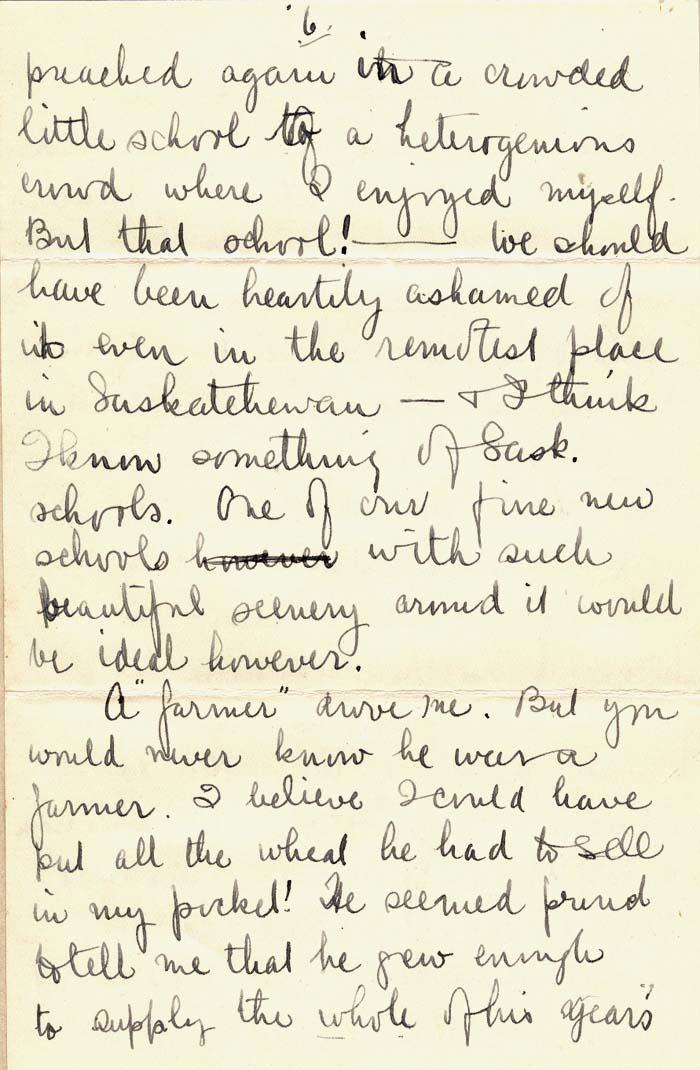 6.
preached again in a crowded
little school to a heterogenious
crowd where I enjoyed myself.
But that school! — We should
have been heartily ashamed of
it even in the remotest place
in Saskatchewan — + I think
I know something of Sask.
schools. One of our fine new
schools however with such
beautiful scenery around it would
be ideal however.
A "farmer" drove me. But you
would never know he was a
farmer. I believe I could have
put all the wheat he had to sell
in my pocket! He seemed proud
to tell me that he grew enough
to supply the whole of his years"